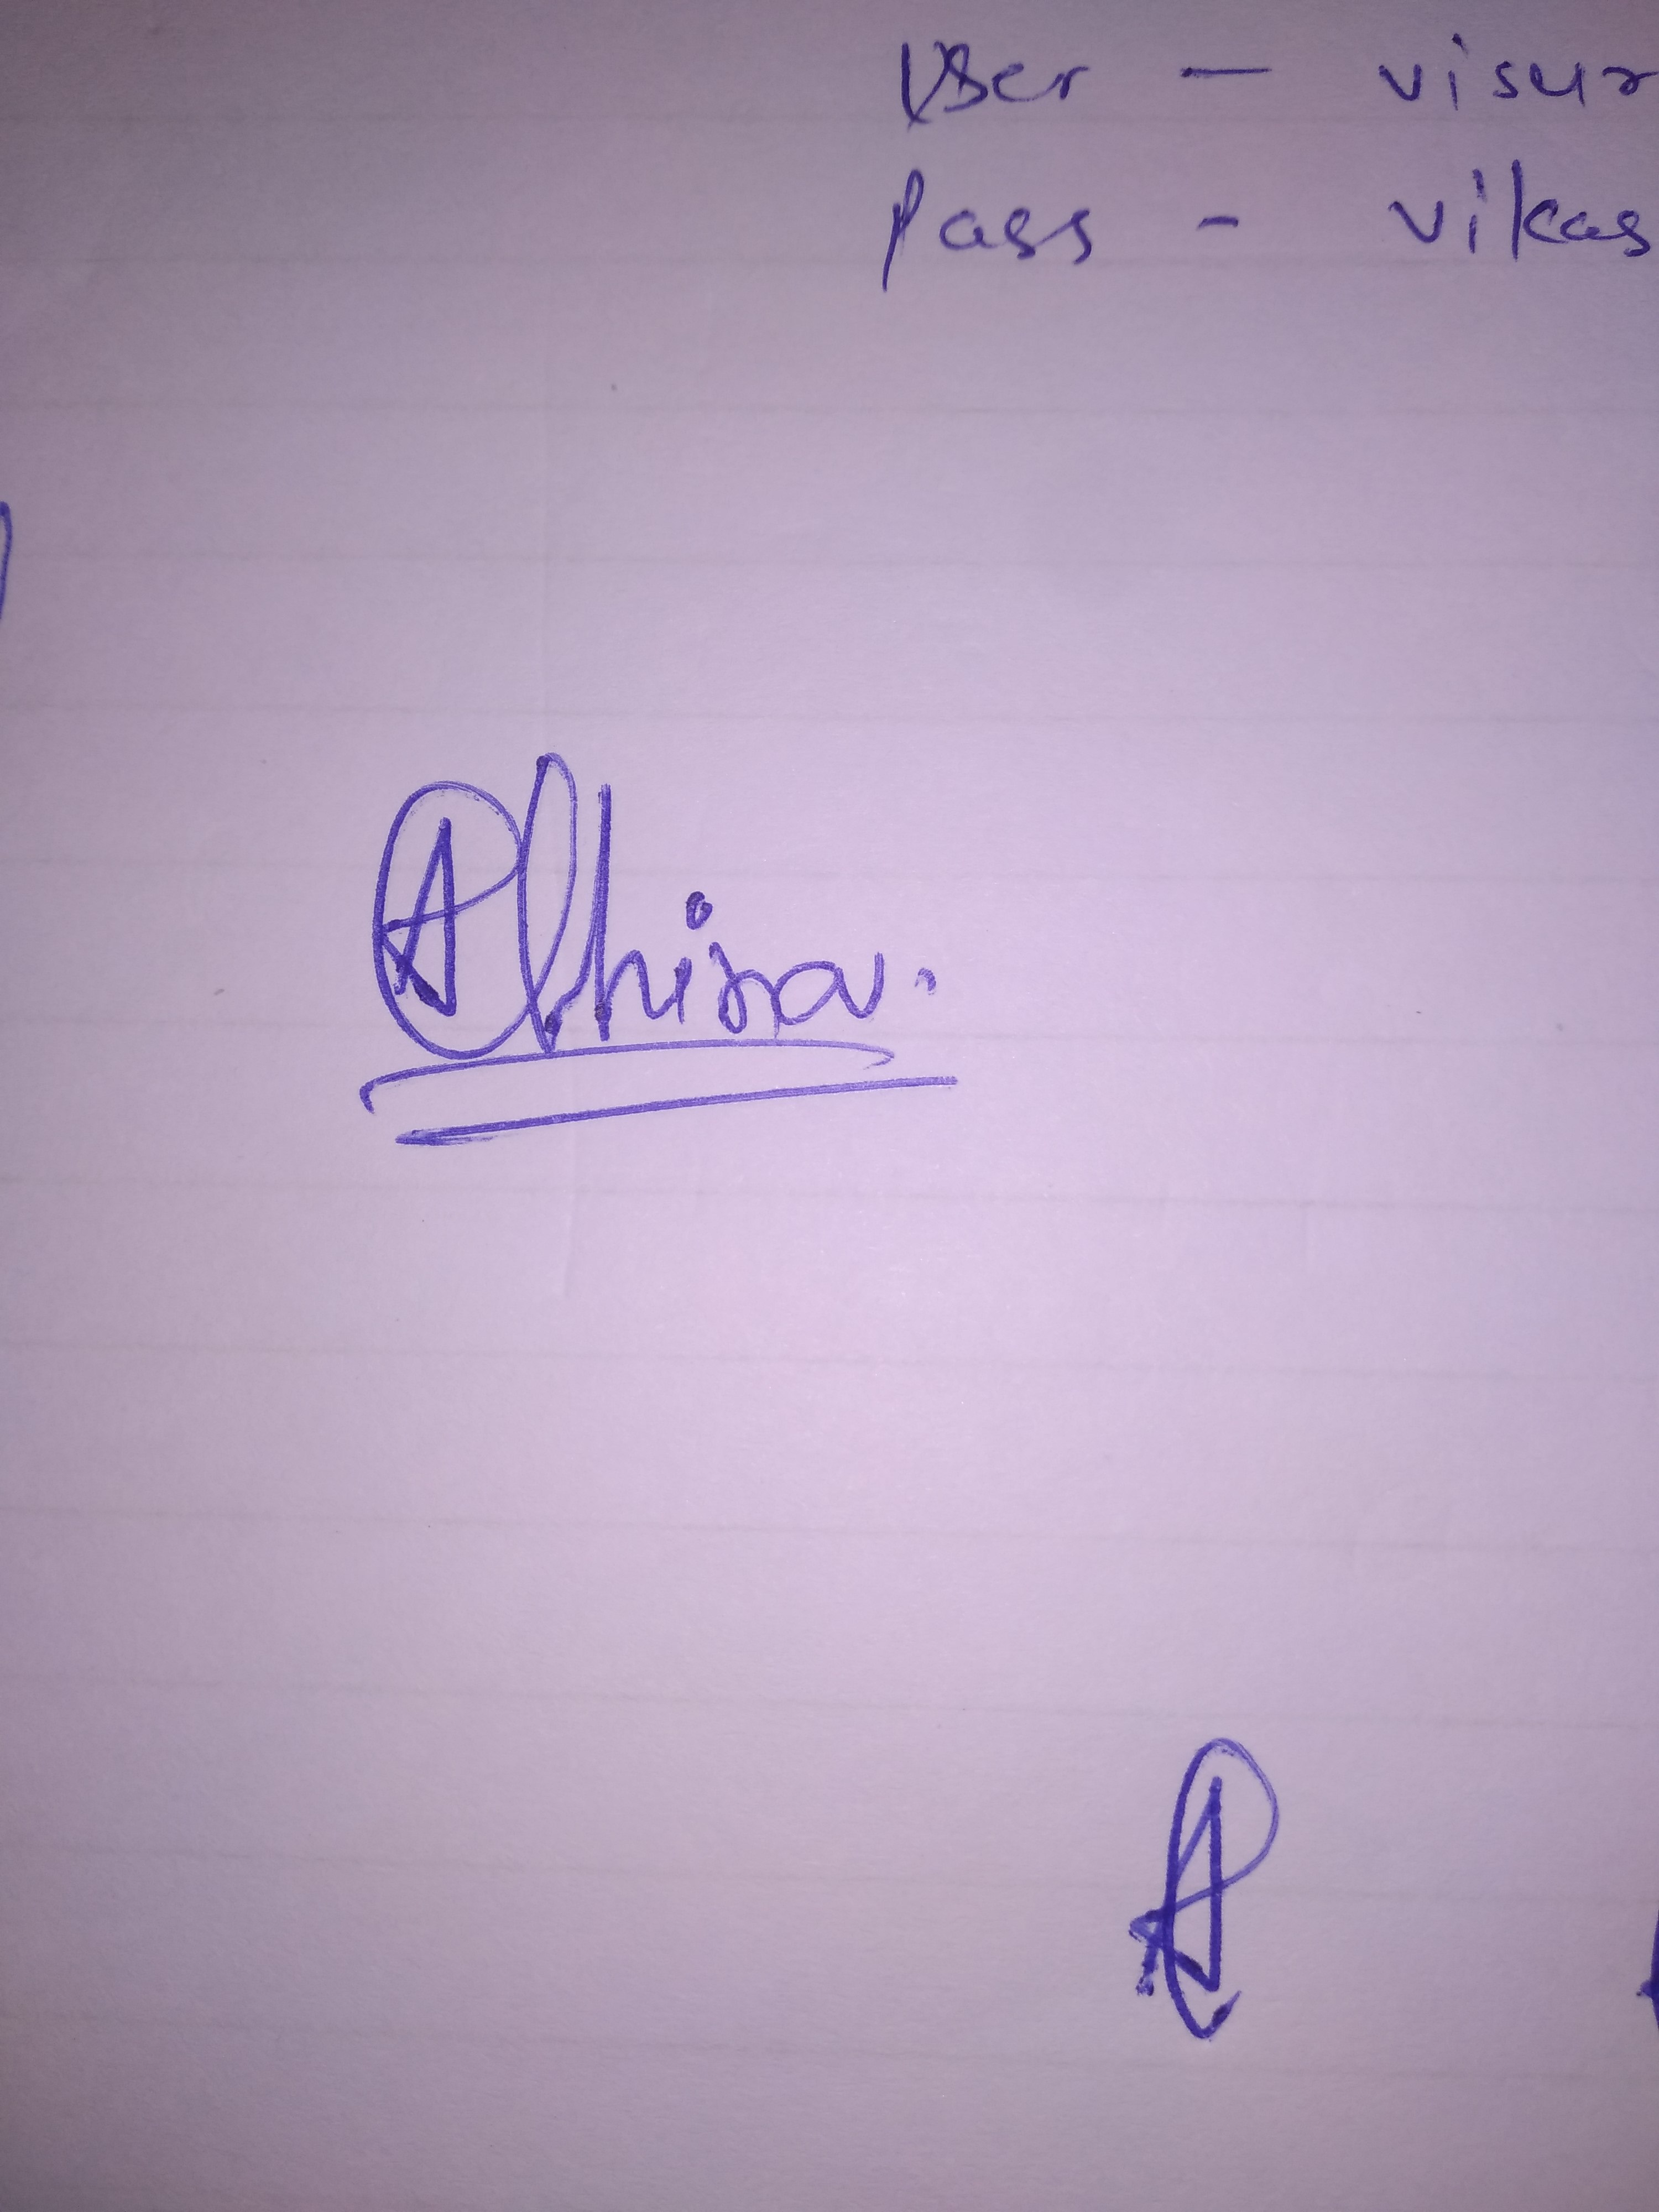 User - visur
Pass - vikas
Abhinav.
A